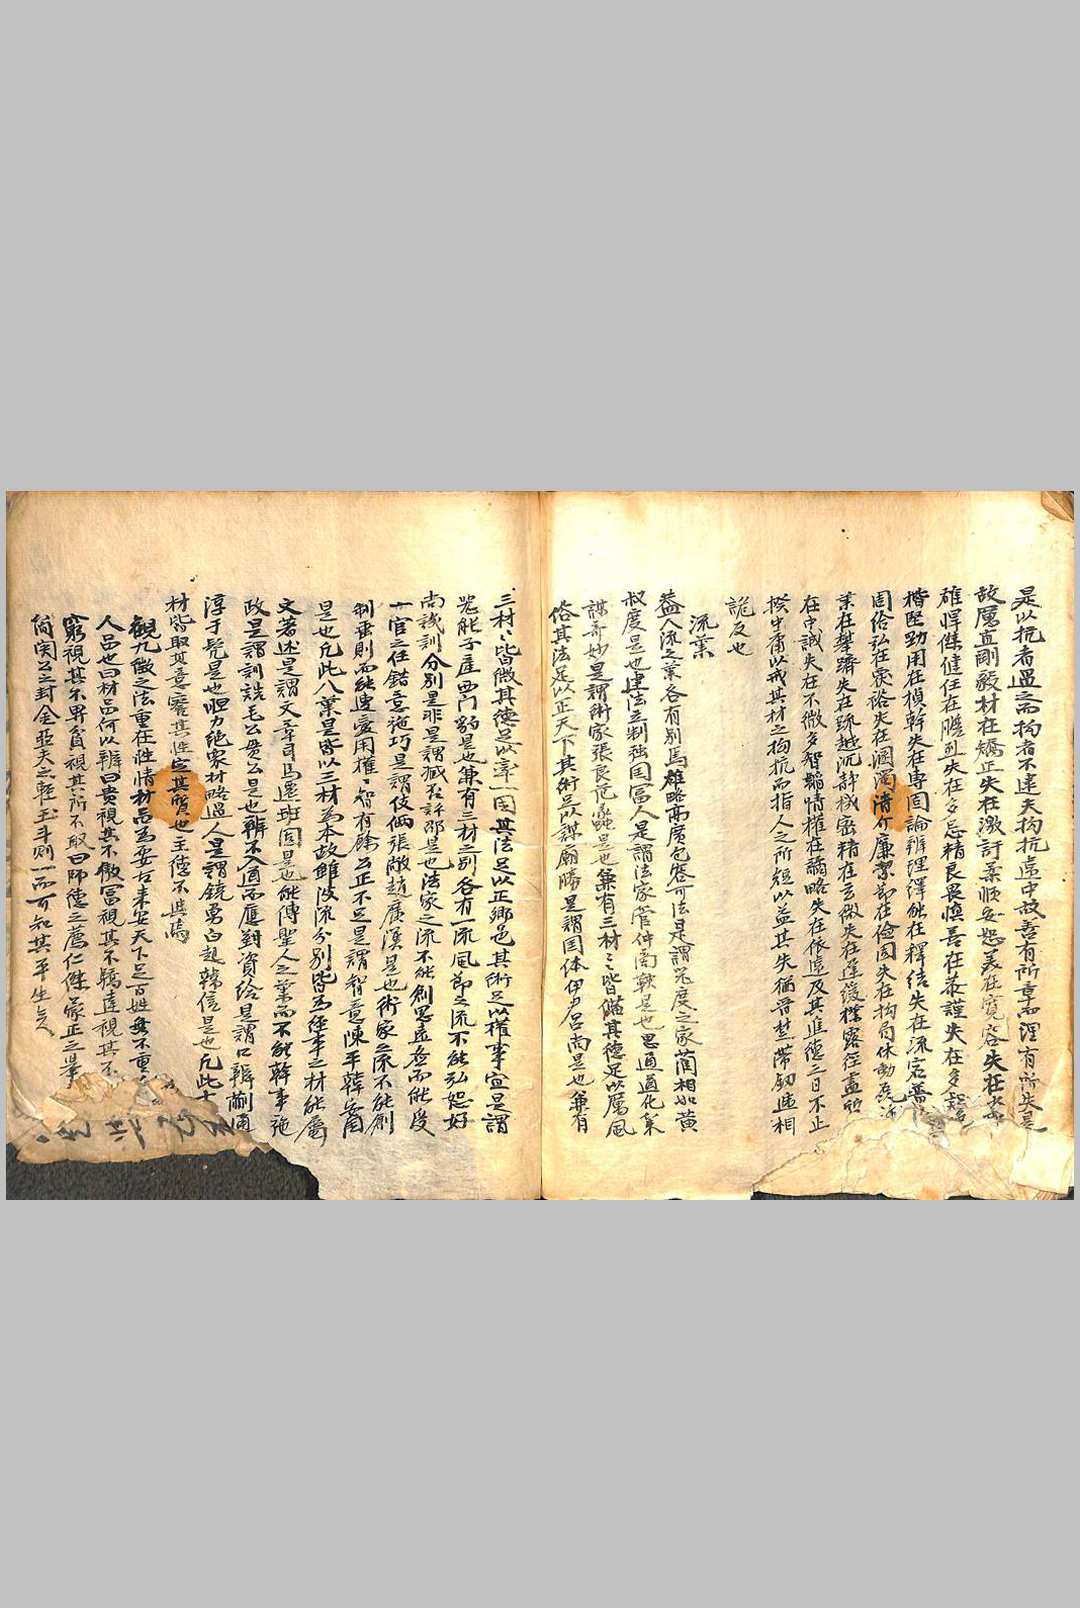 是以抗者過之而拘者不逮夫拘抗違中故善有所章而理有所失是
故厲直剛毅材在矯正失在激訐柔順安恕義在寬容失在
雄悍傑健任在膽烈失在多忌精良畏慎善在恭謹失在多疑
楷堅勁用在楨幹失在專固論辨理繹能在釋結失在流宕普
周給弘在裕失在溷濁清介廉潔節在儉固失在拘局休動
業在攀躋失在疏越沉靜機密精在玄微失在遲後樸露徑盡
在中誠失在不微多智韜情權在譎略失在依違及其進德之日不止
揆中庸以戒其材之拘抗而指人之所短以益其失猶晉楚帶劍遞相
詭反也
流業
蓋人流之業各有別焉雄略高廣包卷可法是謂器度之家藺相如黃
叔度是也建法立制強国富人是謂法家管仲商鞅是也思通道化策
謀奇妙是謂術家張良范蠡是也兼有三材三材皆備其德足以厲風
俗其法足以正天下其術足以謀廟勝是謂国体伊尹呂尚是也兼有
三材三材皆微其德足以率一国其法足以正鄉邑其術足以權事宜是謂
器能子産西門豹是也兼有三材之別各有一流風節之流不能弘恕好
尚譏訓分別是非是謂臧否許邵是也法家之流不能創思遠而能受
一官之任錯意施巧是謂伎倆張敞趙廣漢是也術家之流不能創
制垂則而能遭變用權權智有餘公正不足是謂智意陳平韓安国
是也凡此八業是皆以三材為本故雖波流分別皆為輕事之材能屬
文著述是謂文章司馬遷班固是也能傳聖人之業而不能幹事施
政是謂訓詁毛公貫公是也辨不入道而應對資給是謂口辨蒯通
淳于髡是也胆力絕衆材略過人是謂驍勇白起韓信是也凡此十
材皆取其意審其性定其質也主德不與焉
觀九徵之法重在性情材品為要古来安天下足百姓無不重
人品也曰材品何以辨曰貴視其不傲富視其不驕達視其不
窮視其不畀貧視其所不取曰師德之薦仁傑蒙正之擧
簡関公之封金亞夫之輕玉斗則一而可知其平生矣